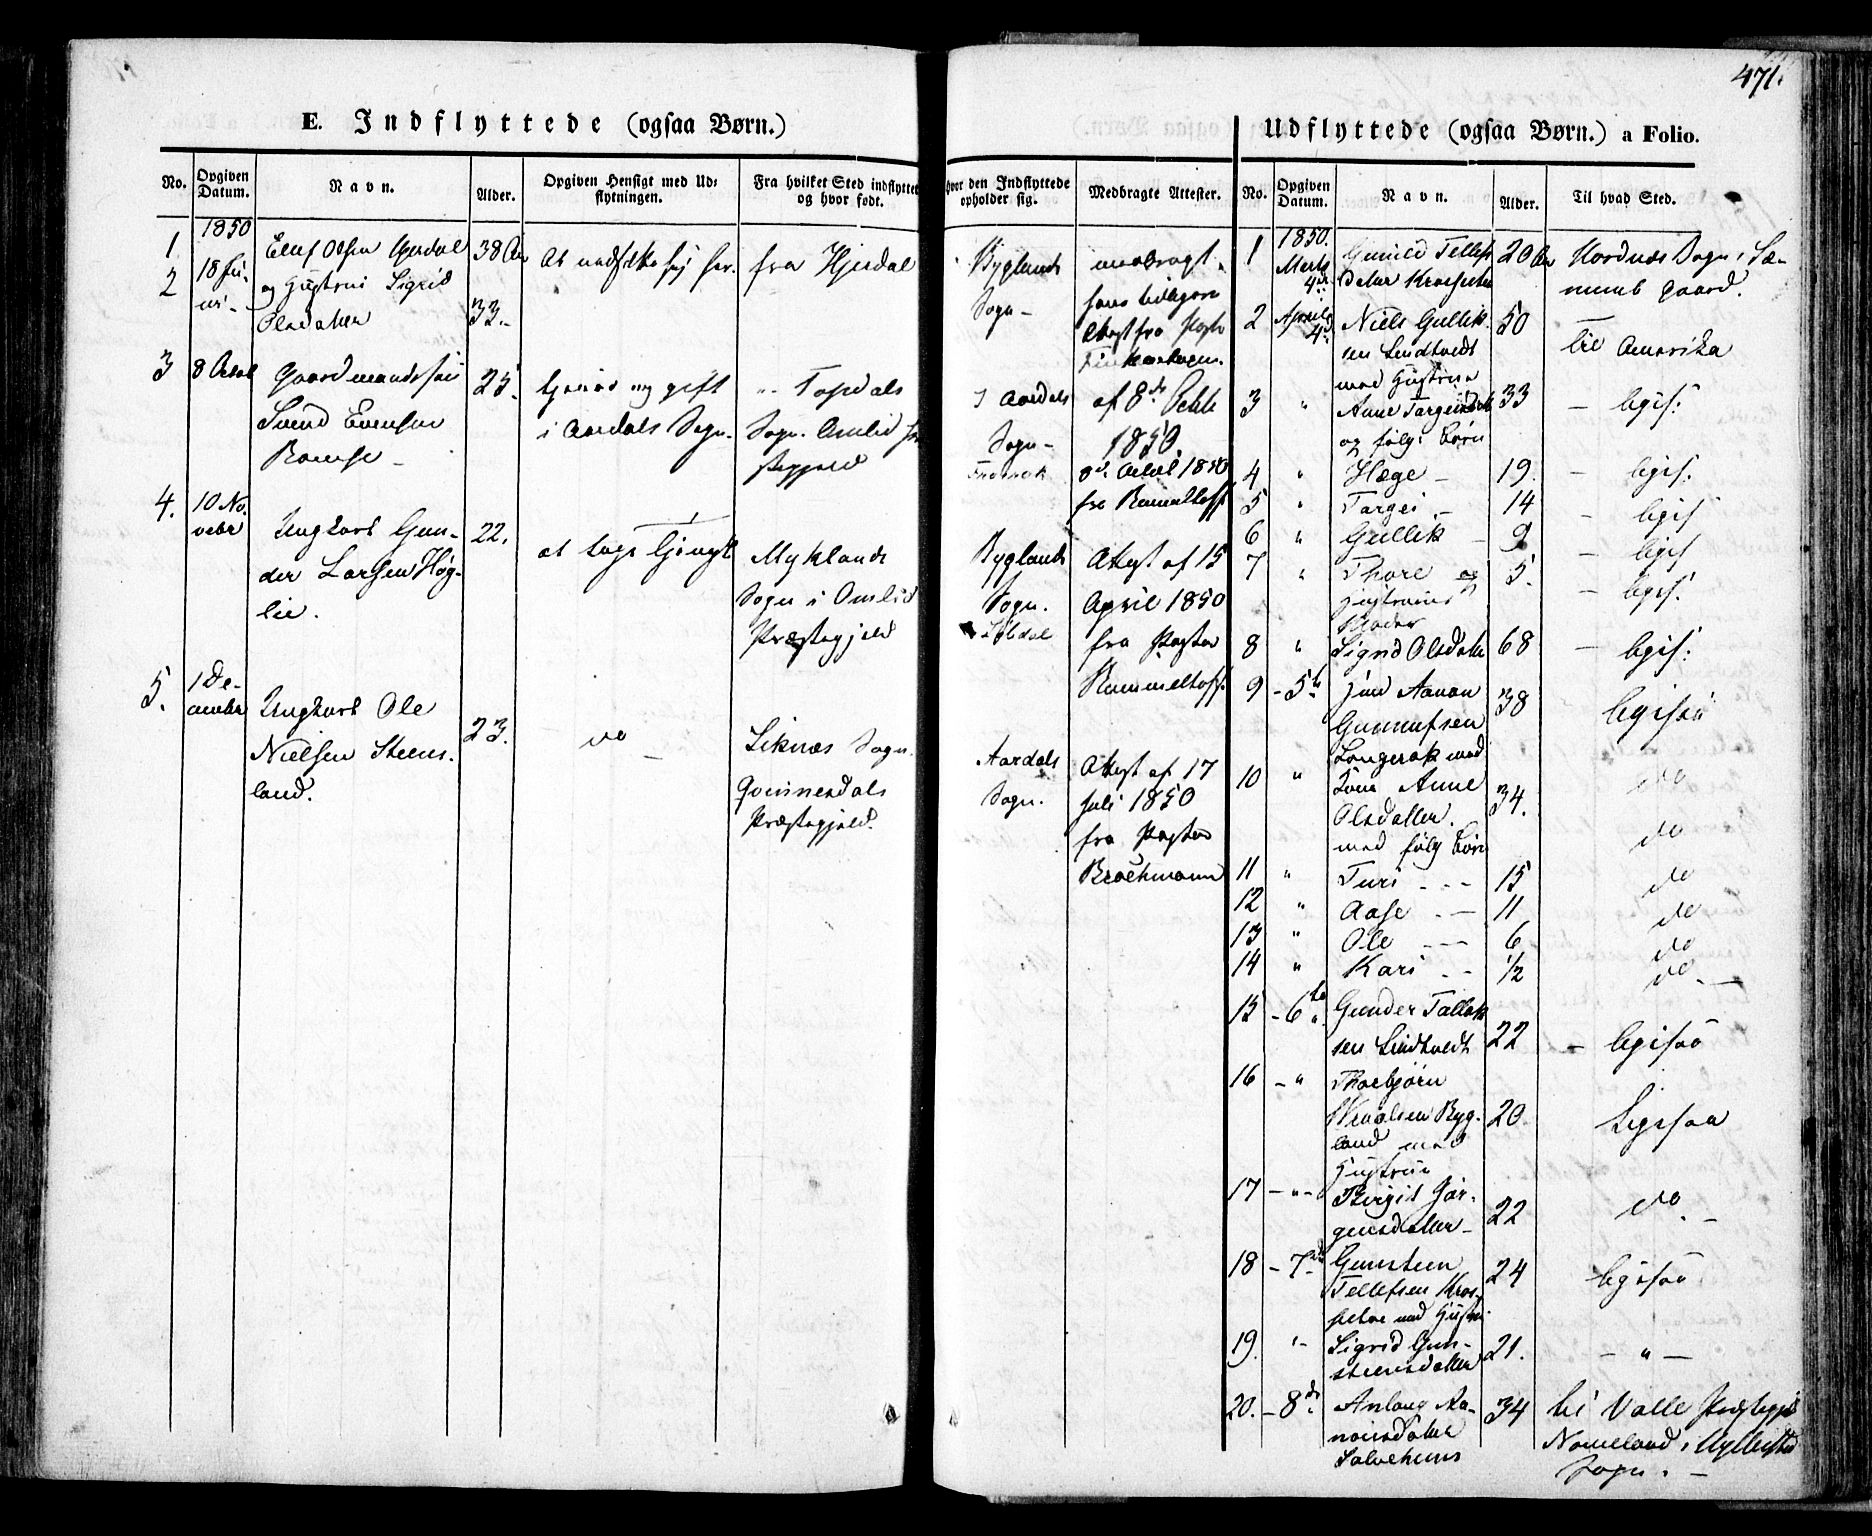 471.
E. Indflyttede (ogsaa Børn.)
No.
Opgiven Datum.
Navn.
Alder.
Opgiven Hensigt med Ud=
flytningen.
Fra hvilket Sted indflyttet
og hvor født.
hvor den Indflyttede
opholder sig.
Medbragte Attester.
1850
1
2
18 Ju-
ni-
Olsen
og Hustrue Sigrid
Olsdatter
38 Aar
33.-
At nedsætte sig her.
fra Hjerdal
Byglands
Sogn -
medbragt
3
8 Octob
Gaardmandssøn
Svend Evensen
25.
tjener og gift
i Aardals Sogn.
Topdals
Sogn. Omlid
I Aardals
Sogn-
1850.
4.
10 No.
vebr
Ungkarl Gun-
der Larsen Høg-
lie.
22.
at søge Tjeneste
Myklands
Sogn i Omlid
Præstegjeld
Byglands
Sogn.
Attest af 15
April 1850
fra Pastor
Rummelhoff.
5.
1 De-
cembr
Ungkarl Ole
Nielsen Steens-
land.
23.
do
Liknæs Sogn.
Qvinnesdals
Præstegjeld.
Aardals
Sogn.
Attest af 17
Juli 1850
fra Pastor
Brochmann
Udflyttede (ogsaa Børn.) a Folio.
No.
Opgiven Datum.
Navn.
Alder.
Til hvad Sted.
1850.
1
Marts
4de
Gunild Tellefs
datter
20 Aar
Hordnæs Sogn,
2
April
4de
Niels Gullik-
sen Lindtvedt
med Hustrue
50
til Amerika
3 " Anne Targeisdatter 33 - ligis:
og følg: Børn
4 " Hæge - 19. - ligis:
5 " Targei - 14 - ligis
6 " Gullik - 9 - ligis
7 " Thore og 5. - ligis:
Hustruens
Moder
8 " Sigrid Olsdatter 68 - ligis:
9 - 5te
Aanon
Gunnufsen
Longerak med
38
ligesaa
10 " Kone Anne
Olsdatter.
34.
do
med følg Børn
do
11 " Turi - - - 15 do
12 " Aase - - 11 do
13 " Ole - - - 6 do
14 " Kari - - 1/2 do. -
15 - 6te Gunder Tallak
sen Lindtvedt 22 - ligesaa
16 - " Thorbjørn
Byg-
land med
Hustrue
20.
Ligesaa
17 - " - Birgit Jør-
gensdatter - 22 do. -
18 - 7de Gunsteen
Tellefsen Kros-
med Hustru
24
ligesaa
19. " Sigrid Gun-
steensdatter 21. - " -
20. - 8de Anlaug Aa-
nonsdatter
34
til Valle Præstegjeld
Nomeland, Hyllestad
Sogn. -